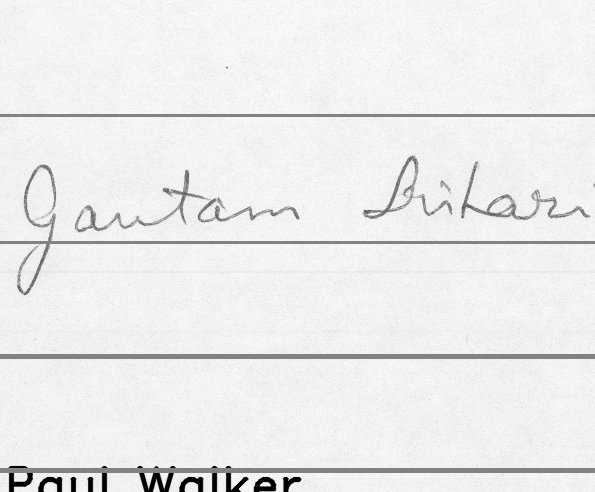 Gautam Srihari
Paul Walker